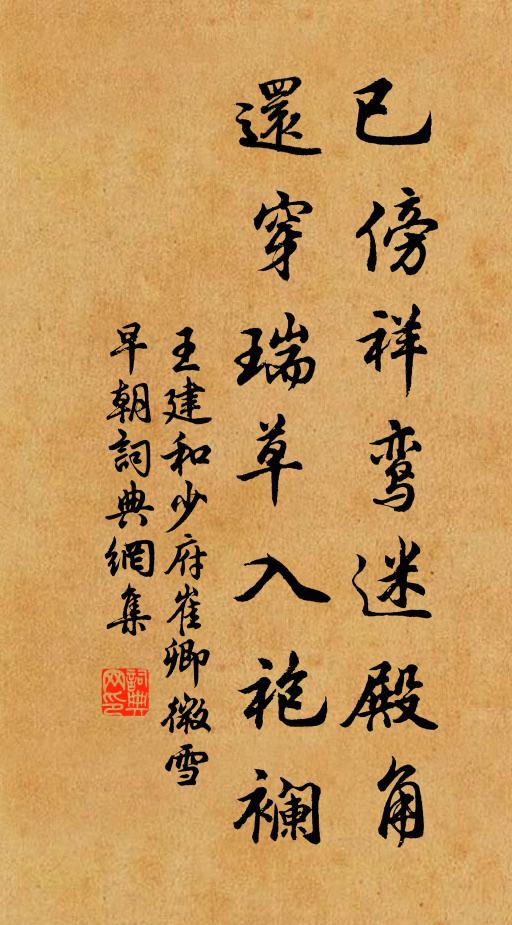 已傍祥鸾迷殿角
還穿瑞草入袍襕
王建和少府崔卿微雪
早朝詞典網集
詞典
网印